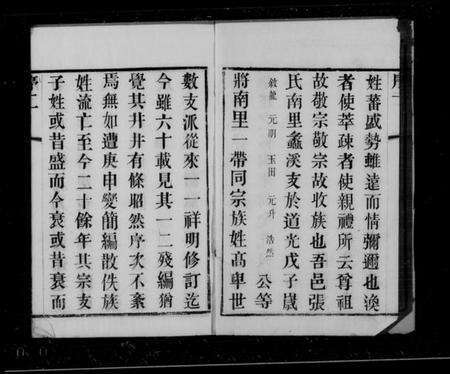 序一
姓蕃或勢雖遠而情彌邇也渙
者使萃疎者使親禮所云尊祖
故敬宗敬宗故收族也吾邑張
氏南里蠡溪支於道光戊子歲
元朋 玉田 元升 浩然 公等
將南里一帶同宗族姓高卑世
數支派從來一一祥明修訂迄
今雖六十載見其一二殘編猶
覺其井井有條昭然序次不紊
焉無如遭庚申變簡編散佚族
姓流亡至今二十餘年其宗支
子姓或昔盛而今衰或昔衰而
序二